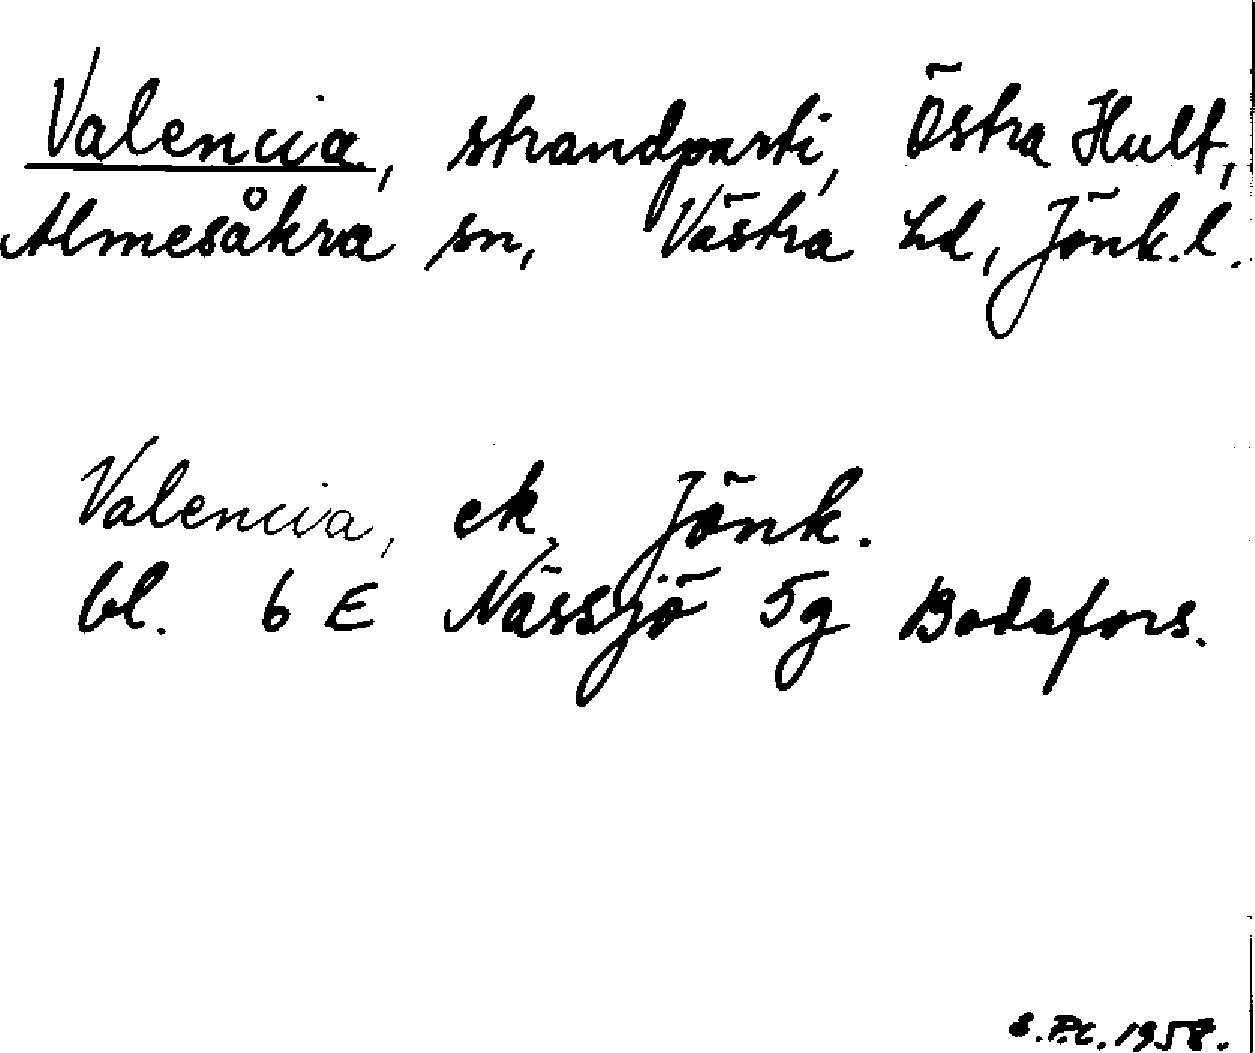 Valencia, strandparti, Östra Hult,
Almesåkra sn, Västra hd, Jönk.l.
Valencia, ek. Jönk.
bl. 6 E Nässjö 5g Bodafors.
1958.